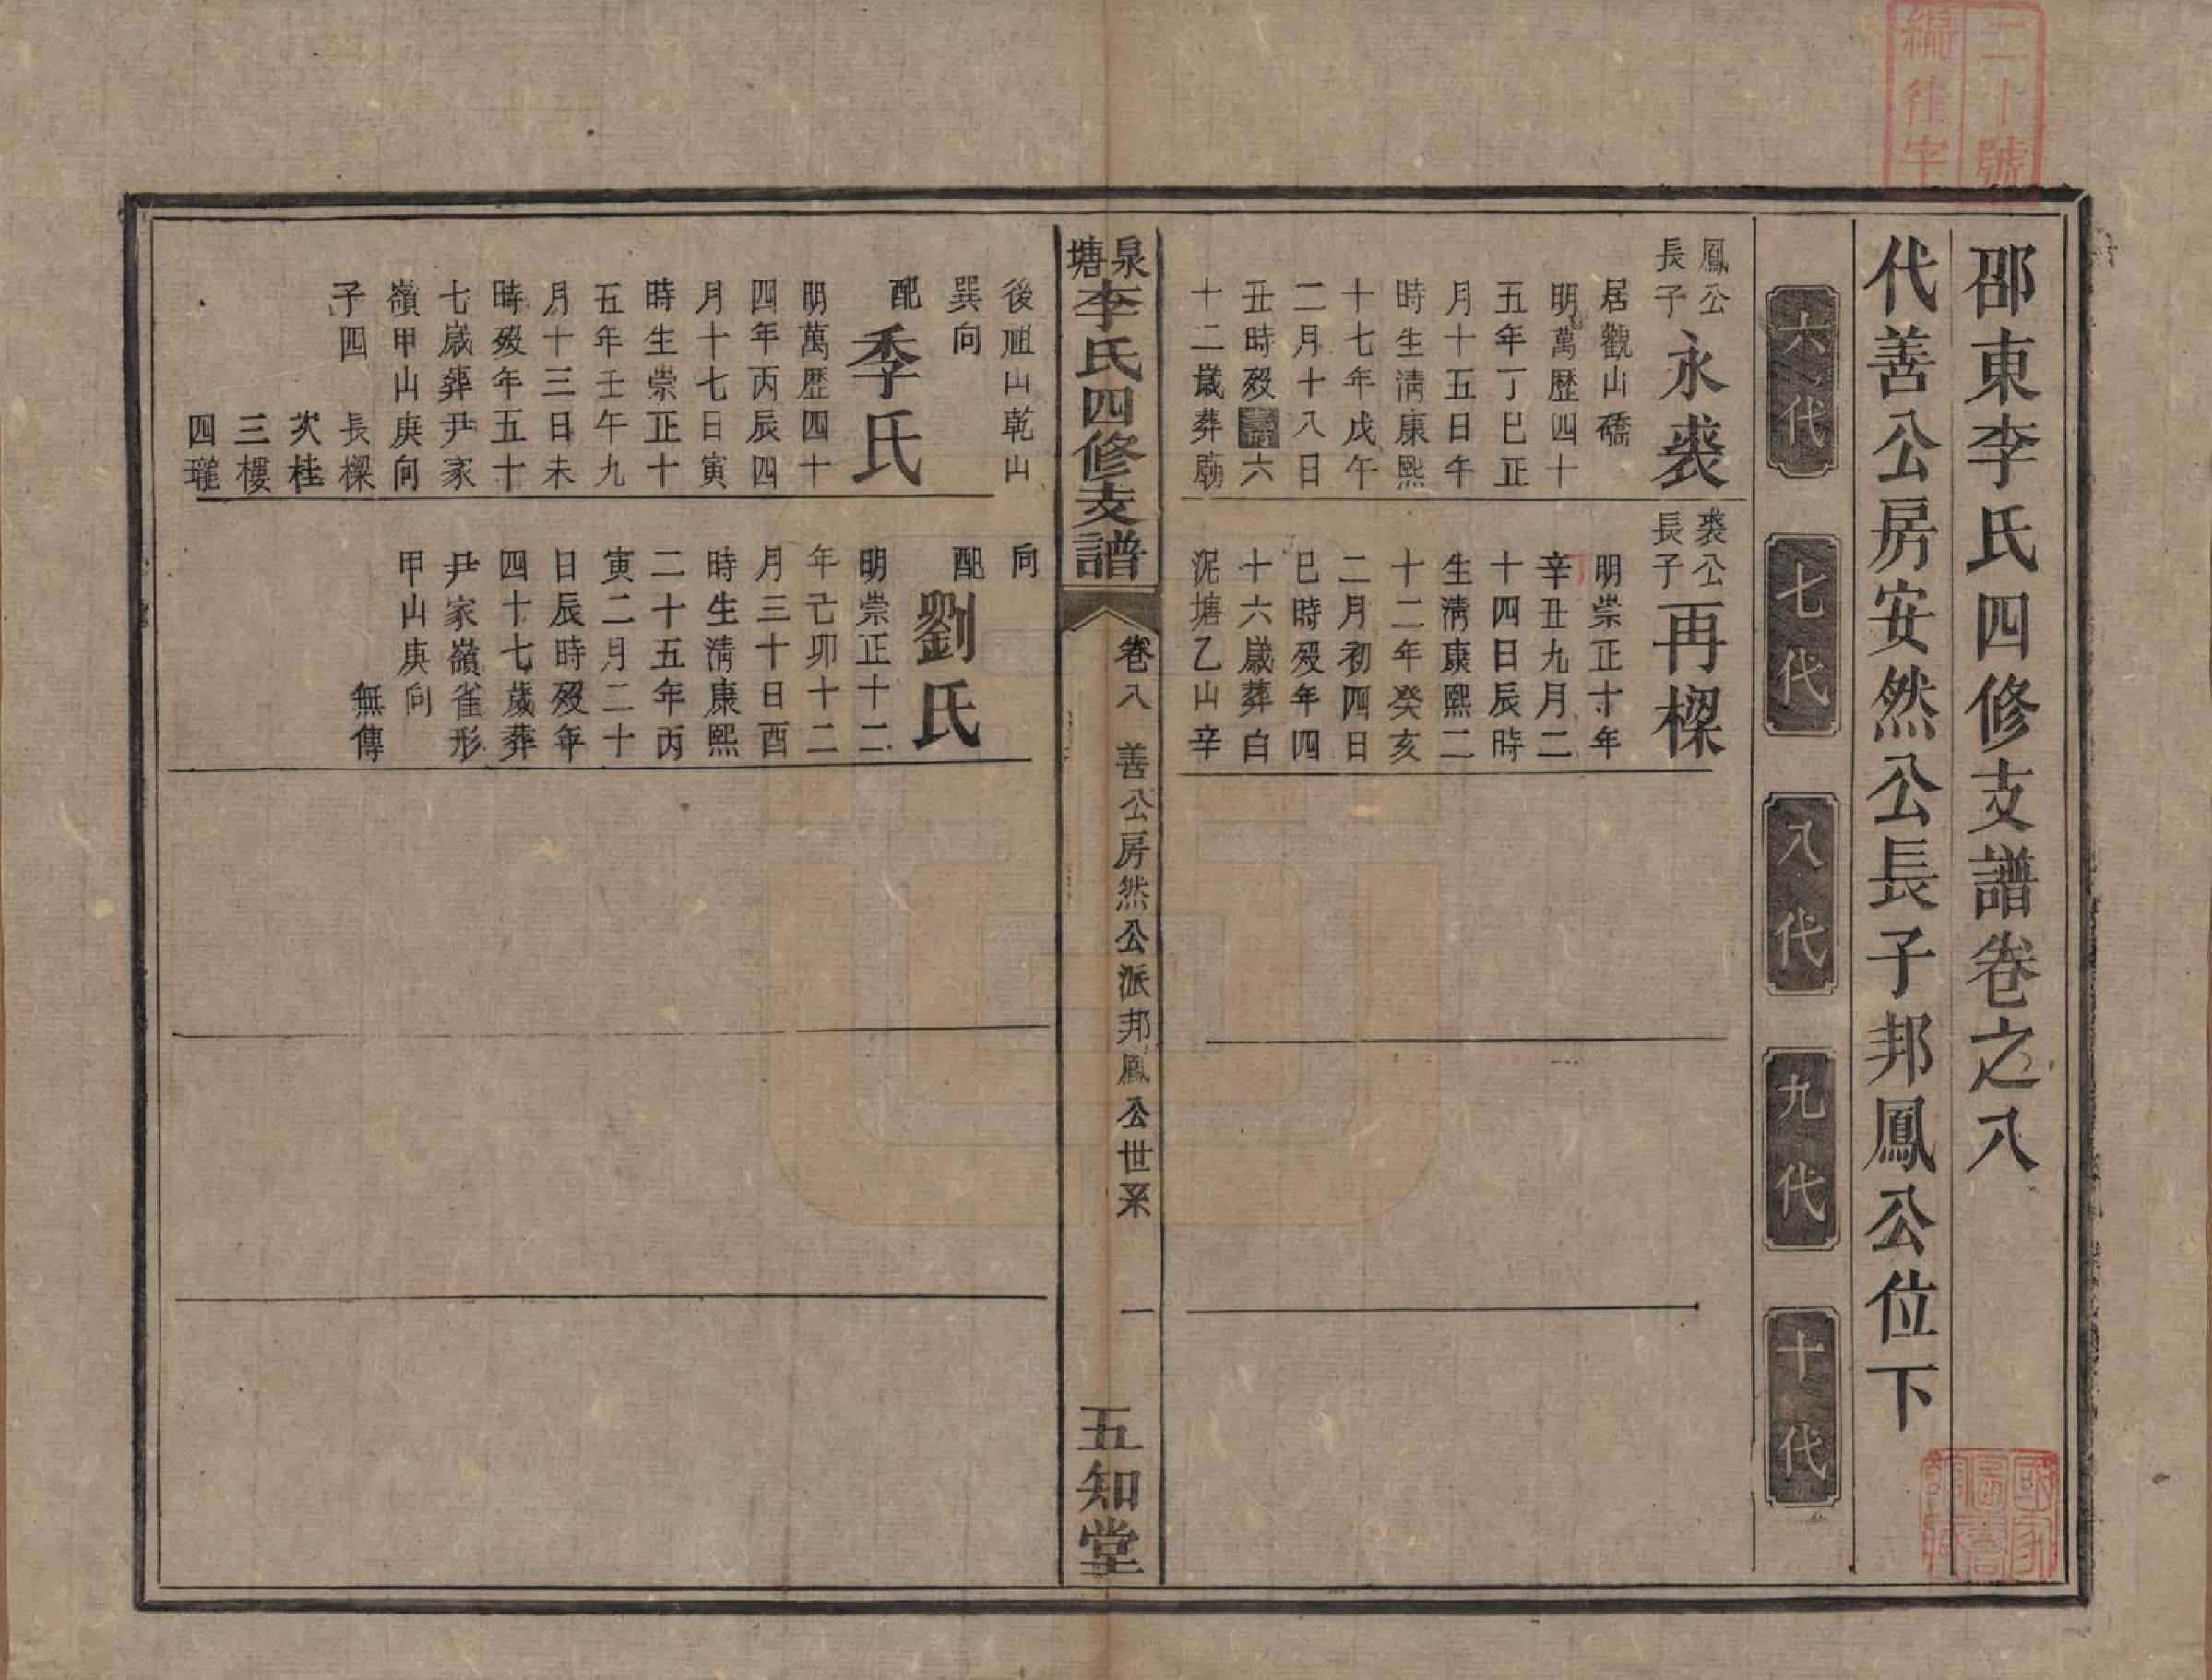 二十號
編往字
邵東李氏四修支譜卷之八
代善公房安然公長子邦鳳公位下
六代
七代
八代
九代
十代
鳳公
長子
永裘
居觀山礄
明萬歷四十
五年丁巳正
月十五日午
時生淸康熙
十七年戊午
二月十八日
丑時殁壽六
十二歲葬廟
後祖山乾山
巽向
配
季氏
明萬歷四十
四年丙辰四
月十七日寅
時生崇正十
五年壬午九
月十三日未
時殁年五十
七歲葬尹家
嶺甲山庚向
子四 長樑
次桂
三樓
四瓘
裘公
長子
再樑
明崇正十年
辛丑九月二
十四日辰時
生淸康熙二
十二年癸亥
二月初四日
巳時殁年四
十六歲葬白
泥塘乙山辛
向
配
劉氏
明崇正十二
年己卯十二
月三十日酉
時生淸康熙
二十五年丙
寅二月二十
日辰時殁年
四十七歲葬
尹家嶺雀形
甲山庚向
無傳
泉塘李氏四修支譜
卷八 善公房然公派邦鳳公世系 一
五知堂
國家
圖書